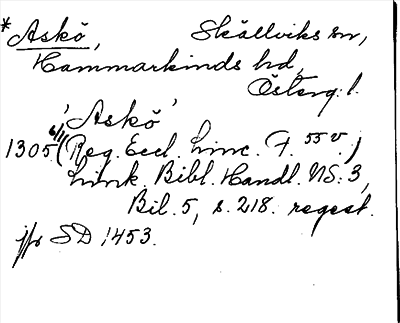 * Askö, Skällviks sn,
Hammarkinds hd,
Österg: l.
'Askö'
1305 6/11 (Reg. Eccl. Linc. F. 55 v.)
Link. Bibl. Handl. NS: 3,
Bil. 5, s. 218. regest.
jfr SD 1453.